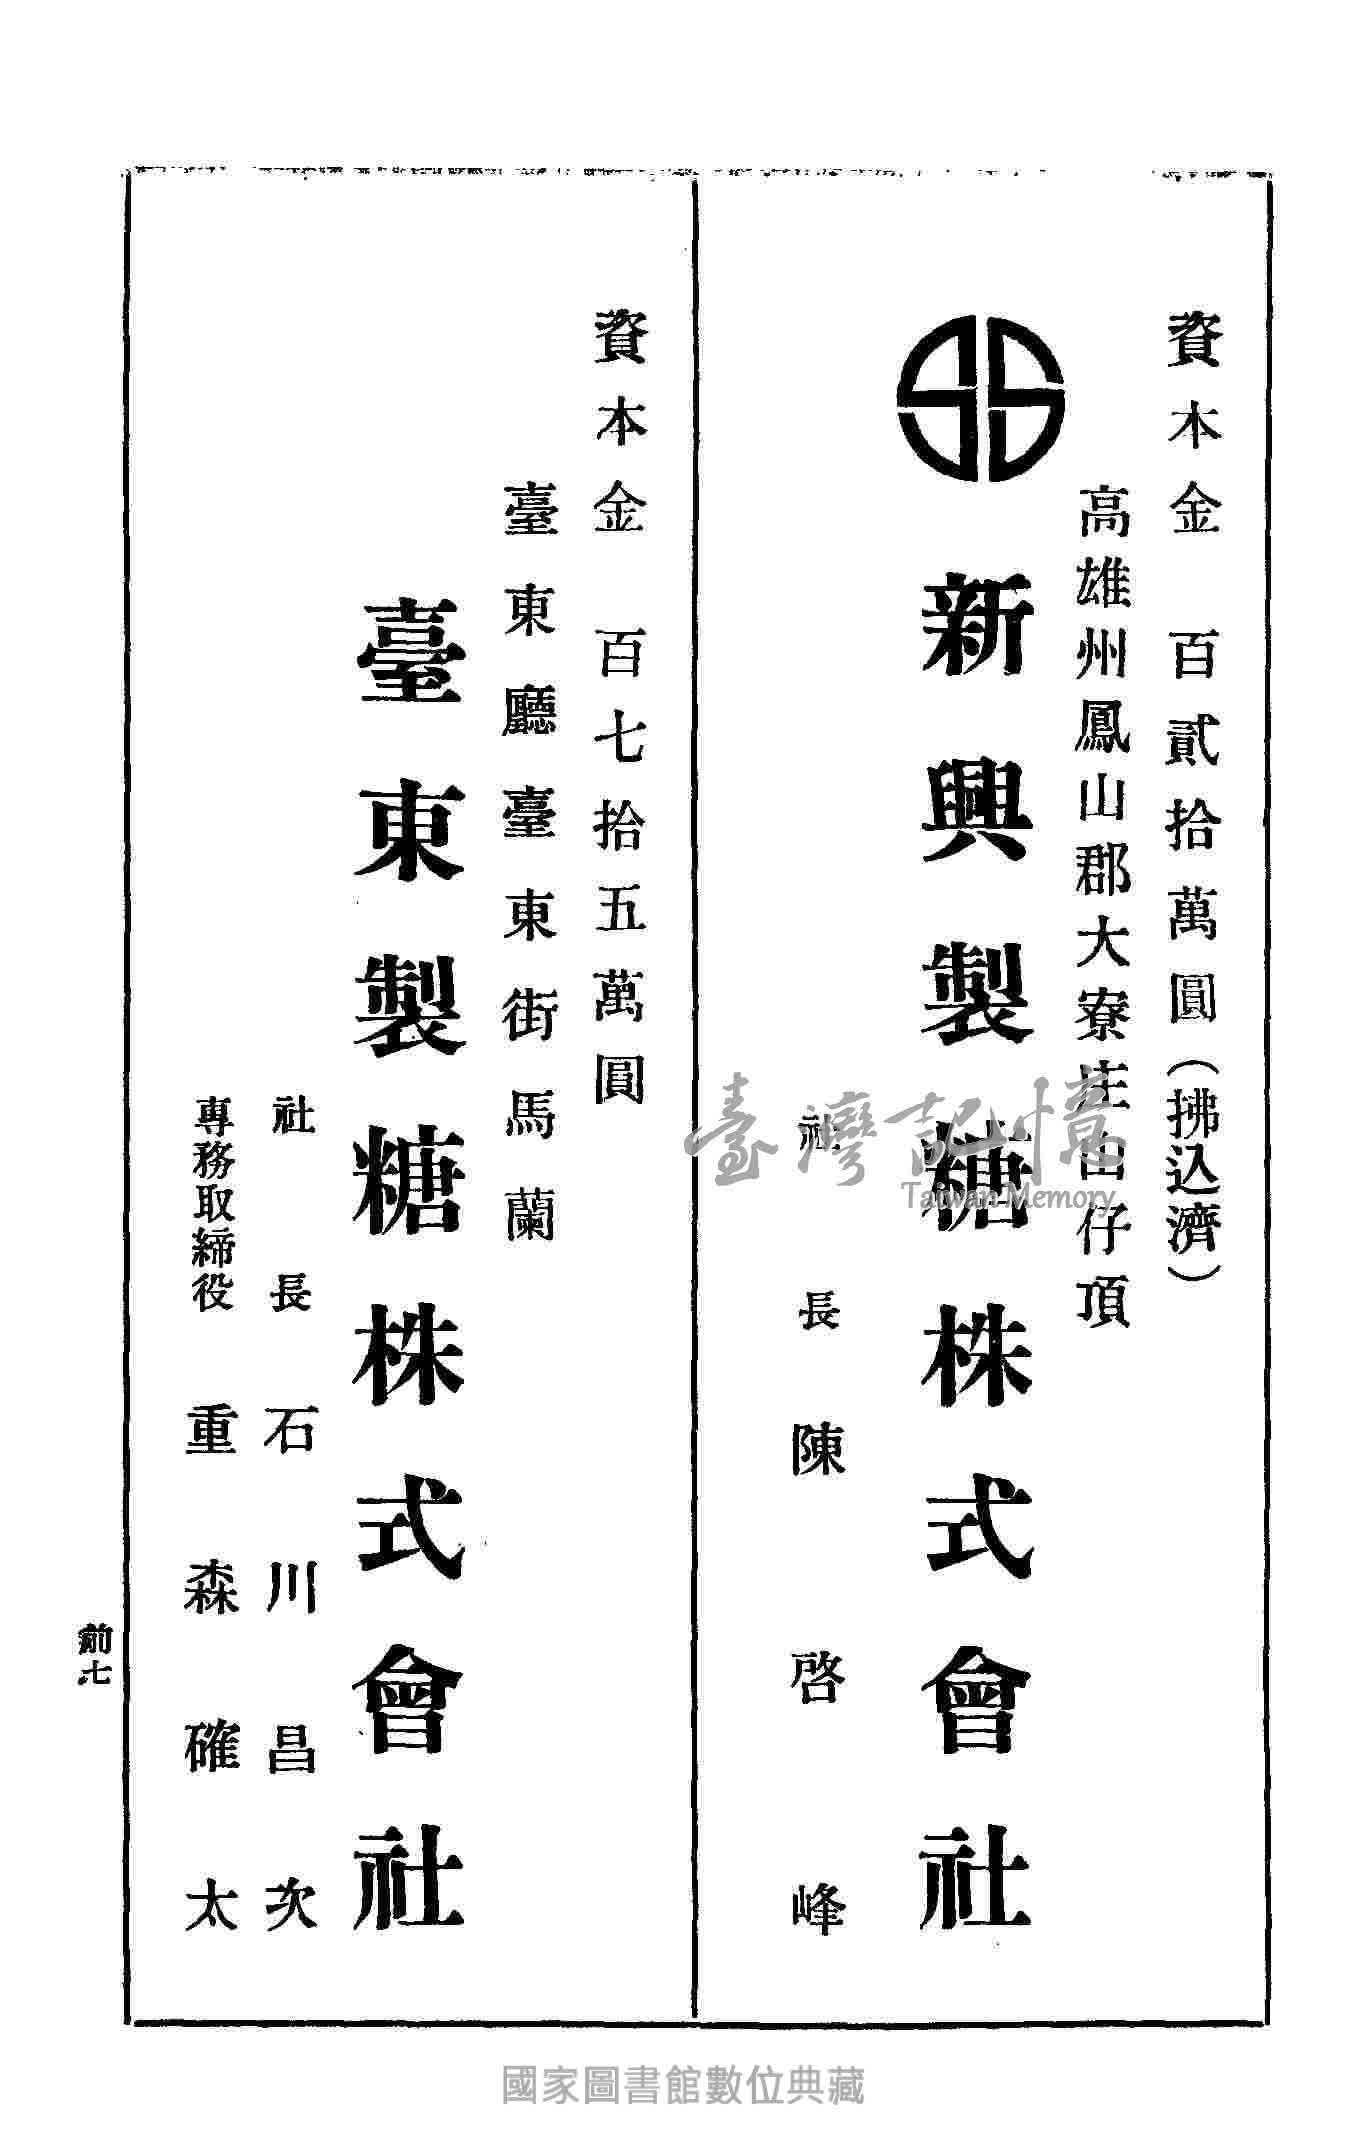 資本金　百貳拾萬圓(拂込濟)
高雄州鳳山郡大寮庄山仔頂
新興製糖株式會社
社長　陳啓峰
資本金　百七拾五萬圓
臺東廳臺東街馬蘭
臺東製糖株式會社
社長　石川昌次
專務取締役　重森確太
前七
臺灣記憶
Taiwan Memory
國家圖書館數位典藏